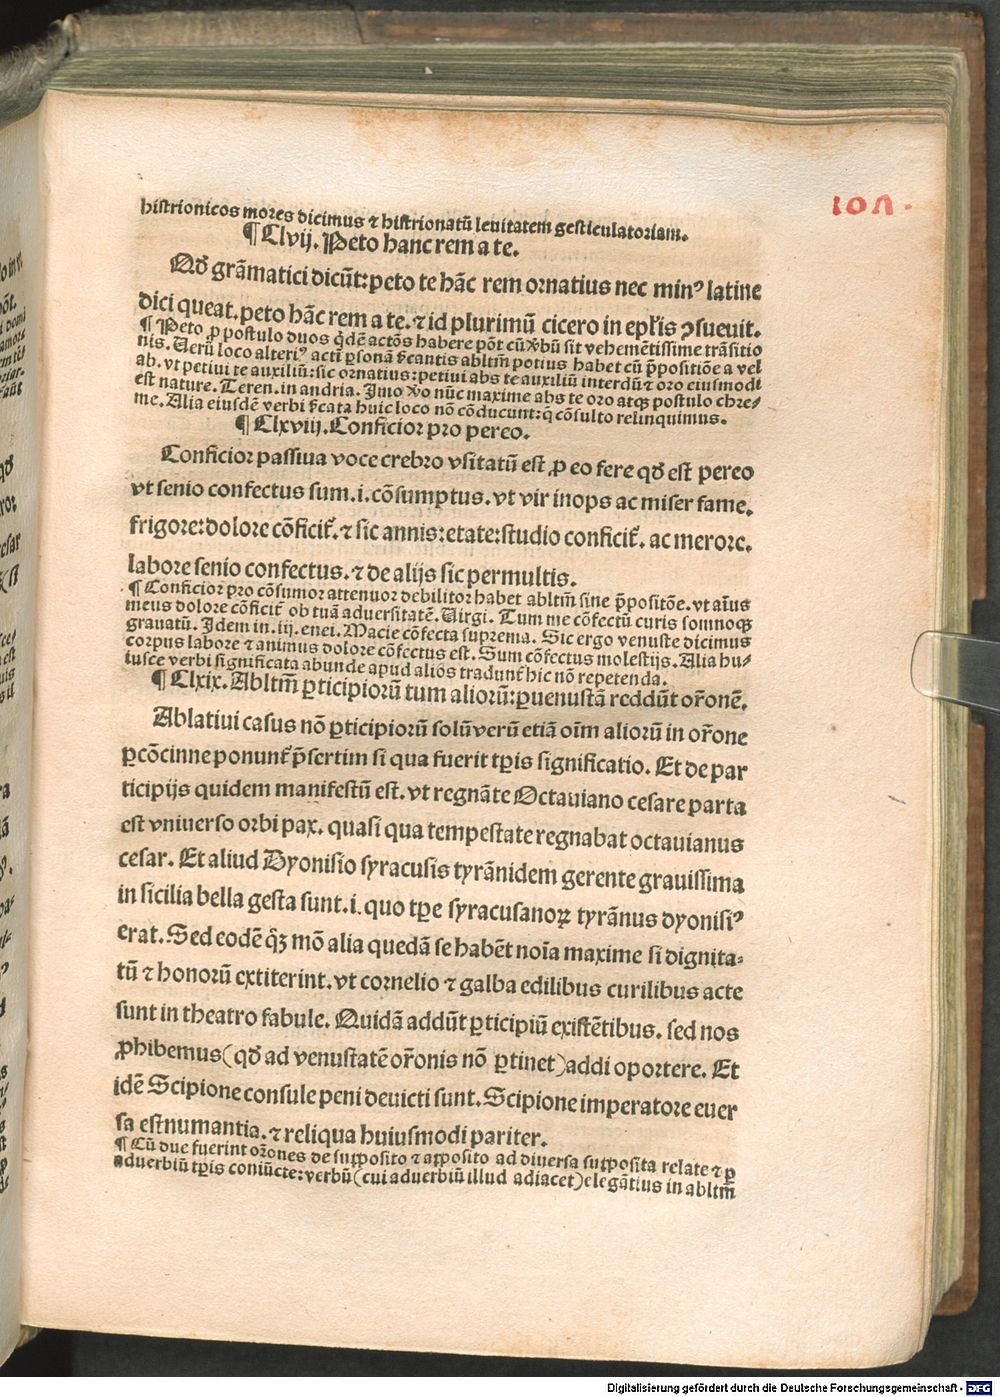 107.
histrionicos mores dicimus ⁊ histrionatū leuitatem gesticulatoriam.
¶ Clvij. Peto hanc rem a te.
Qđ grāmatici dicūt: peto te hāc rem ornatius nec minꝰ latine
dici queat. peto hāc rem a te. ⁊ id plurimū cicero in epłis ꝯsueuit.
¶ Peto ꝓ postulo duos q̄dē actōs habere pōt cū v̄bū sit vehemētissime trāsitio
nis. Uerū loco alteriꝰ acti ꝑsonā ſcantis abltm̄ potius habet cū p̄positiōe a vel
ab. vt petiui te auxiliū: sic ornatius: petiui abs te auxiliū interdū ⁊ oro eiusmodi
est nature. Teren. in andria. Imo v̄o nūc maxime abs te oro atqꝫ postulo chre⸗
me. Alia eiusdē verbi ſcata huic loco nō cōducunt: q̄ cōsulto relinquimus.
¶ Clxviij. Conficior pro pereo.
Conficior passiua voce crebro vsitatū est ꝓ eo fere qđ est pereo
vt senio confectus sum .i. cōsumptus. vt vir inops ac miser fame.
frigore: dolore cōficit᷑. ⁊ sic annis: etate: studio conficit᷑. ac merore.
labore senio confectus. ⁊ de alijs sic permultis.
¶ Conficior pro cōsumor attenuor debilitor habet abltm̄ sine p̄positōe. vt aīus
meus dolore cōficit᷑ ob tuā aduersitatē. Uirgi. Tum me cōfectū curis somnoqꝫ
grauatū. Idem in .iij. enei. Macie cōfecta suprema. Sic ergo venuste dicimus
corpus labore ⁊ animus dolore cōfectus est. Sum cōfectus molestijs. Alia hu⸗
iusce verbi significata abunde apud alios tradunt᷑ hic nō repetenda.
¶ Clxix. Abltm̄ ꝑticipiorū tum aliorū: ꝑuenustā reddūt or̄onē.
Ablatiui casus nō ꝑticipiorū solū verū etiā oīm aliorū in or̄one
ꝑcōcinne ponunt᷑ p̄sertim si qua fuerit tp̄is significatio. Et de par
ticipijs quidem manifestū est. vt regnāte Octauiano cesare parta
est vniuerso orbi pax. quasi qua tempestate regnabat octauianus
cesar. Et aliud Dyonisio syracusis tyrānidem gerente grauissima
in sicilia bella gesta sunt .i. quo tp̄e syracusanoꝝ tyrānus dyonisiꝰ
erat. Sed eodē q̄ꝫ mō alia quedā se habēt noīa maxime si dignita⸗
tū ⁊ honorū extiterint. vt cornelio ⁊ galba edilibus curilibus acte
sunt in theatro fabule. Quidā addūt ꝑticipiū existētibus. sed nos
ꝓhibemus (qđ ad venustatē or̄onis nō ꝑtinet) addi oportere. Et
idē Scipione consule peni deuicti sunt. Scipione imperatore euer
sa est numantia. ⁊ reliqua huiusmodi pariter.
¶ Cū due fuerint or̄ones de sup̱posito ⁊ ap̱posito ad diuersa sup̱posita relate ⁊ ꝑ
aduerbiū tp̄is coniūcte: verbū (cui aduerbiū illud adiacet) elegātius in abltm̄
Digitalisierung gefördert durch die Deutsche Forschungsgemeinschaft - DFG